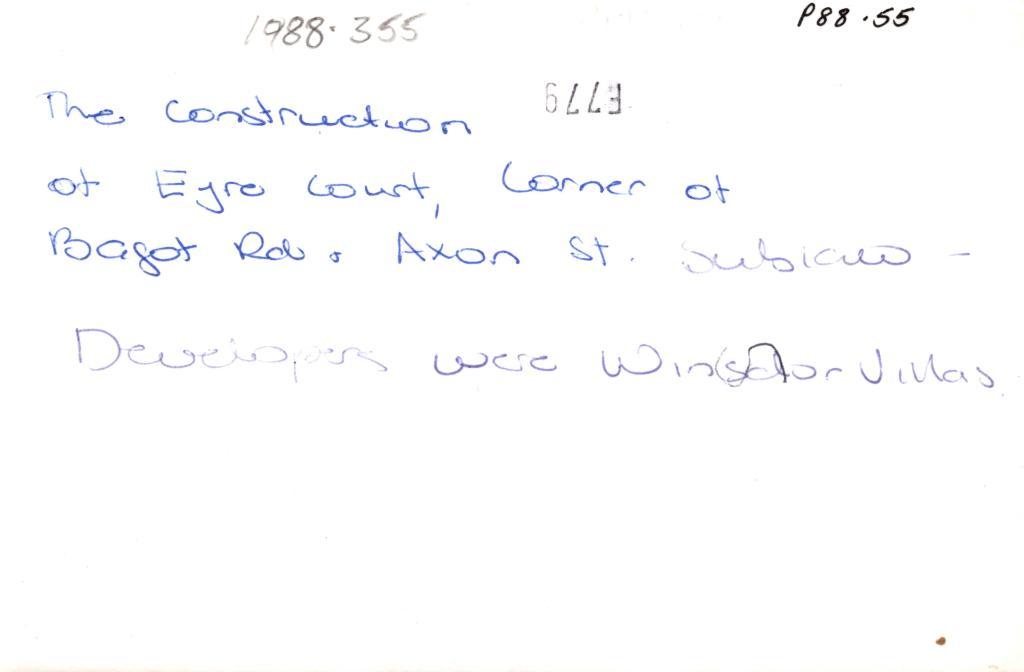 1988.355
P88.55
E779
The Construction
of Eyre Court, Corner of
Bagot Rd & Axon St. Subiaco -
Developers were Windsor Villas